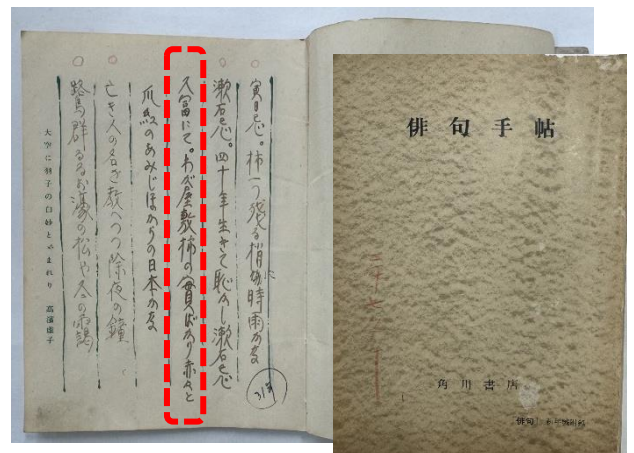 寅日忌。柿一つ残る梢に時雨かな
漱石忌。四十年生きて恥かし漱石忌
久富にて。わが屋敷柿の實ばかり赤々と
爪紋のあみじほからの日本かな
亡き人の名を教へつつ除夜の鐘
群るるお濠の松や冬の
大空に羽子の白妙とゞまれり 高濱虚子
31年
俳句手帖
角川書店